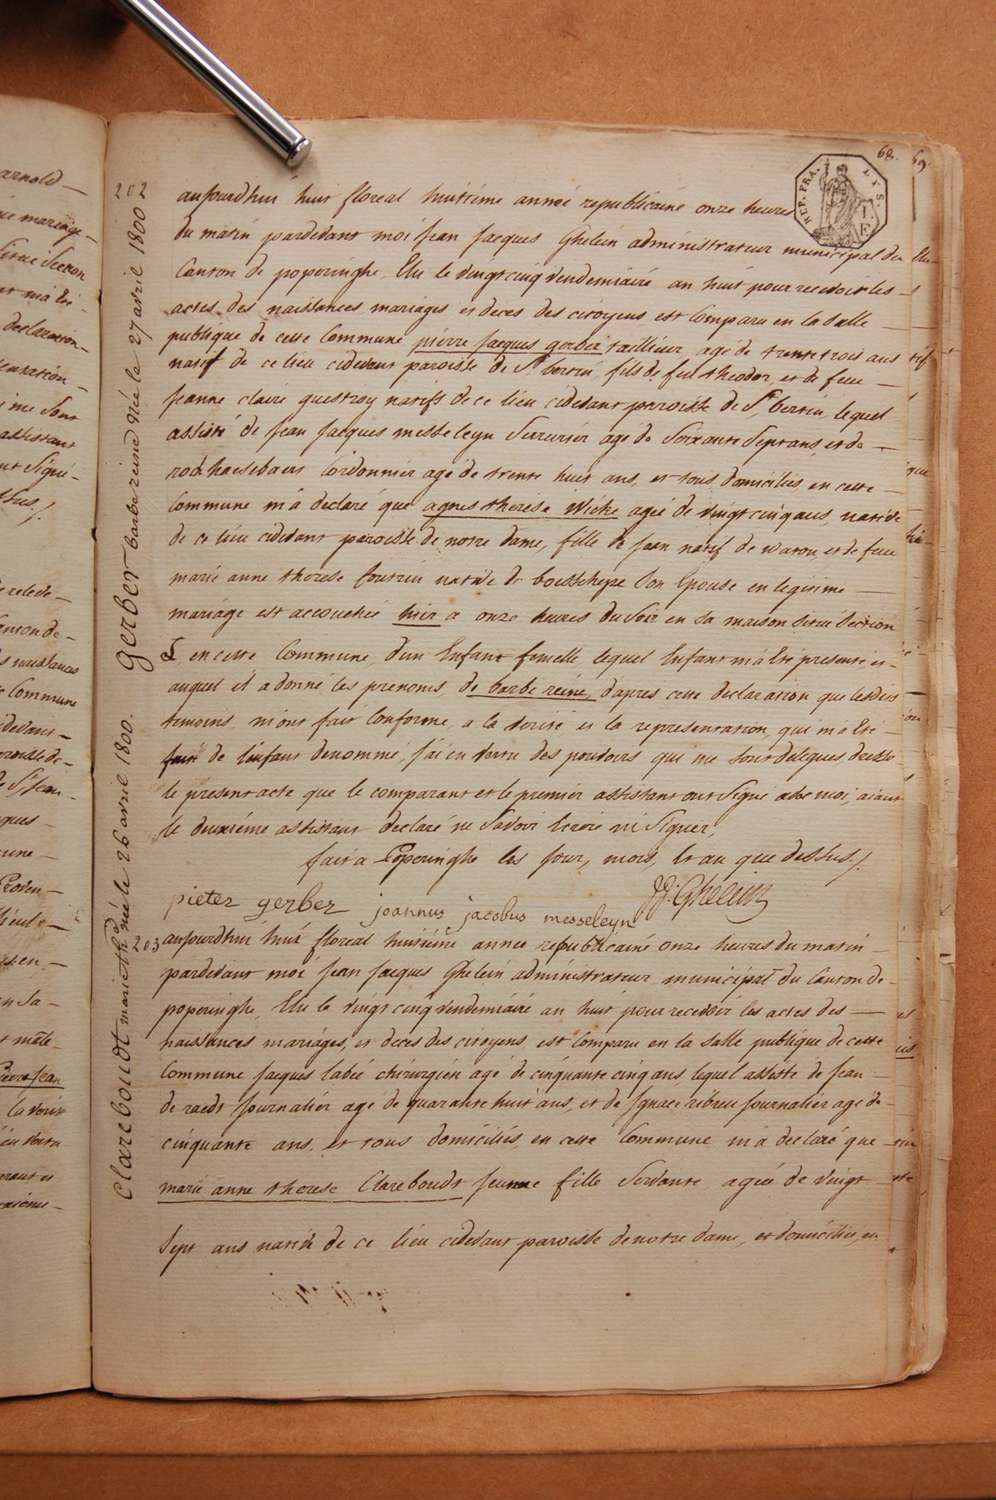 68. 69.
REP. FRA.
202
gerber barbe reine Née le 27 avril 1800
aujourdhui huit floreal huitième année republicaine onze heures
du matin pardevant moi Jean Jacques Ghelein administrateur municipal du
Canton de poperinghe, Elu le vingt cinq vendemiaire an huit pour recevoir les
actes des naissances mariages et deces des citoyens est Comparu en la salle
publique de cette Commune pierre Jacques gerber tailleur, agé de trente trois ans
natif de ce lieu cidevant paroisse de St bertin, fils de feu theodor, et de feue
Jeanne claire questroy natifs de ce lieu cidevant paroisse de St bertin, lequel
assisté de Jean Jacques messeleyn Serrurier agé de Soixante Sept ans, et de
roch haesebaert Cordonnier agé de trente huit ans, et tous domiciliés en cette
Commune m'a declaré que agnes therese agée de vingt cinq ans, native
de ce lieu cidevant paroisse de notre dame, fille de Jean natif de watou, et de feue
marie anne therese native de boesschepe Son Epouse en legitime
mariage est accouchée hier a onze heures du Soir en sa maison Située Section
en cette Commune, d'un Enfant femelle, lequel Enfant m'a Eté presenté et
auquel il a donné les prenoms, de barbe reine, d'apres cette declaration que lesdits
temoins m'ont fait Conforme, a la verité, et la representation, qui m'a Eté
faite de l'enfant denommé, j'ai en vertu des pouvoirs qui me sont delegués, dressé
le present acte que le comparant et le premier assistant ont Signé avec moi, aiant
le deuxième assistant declaré ne Savoir Ecrire ni Signer,
fait a Poperinghe les Jour, mois, Et an que dessus./.
pieter gerber joannus jacobus messeleyn JJ. Ghelein
203
Clareboudt marie th née le 26 avril 1800.
aujourdhui huit floreal huitième année republicaine onze heures du matin
pardevant moi Jean Jacques Ghelein administrateur municipal du Canton de
poperinghe, Elu le vingt cinq vendemiaire an huit pour recevoir les actes des
naissances mariages, et deces des citoyens, est Comparu en la salle publique de cette
Commune Jacques labié chirurgien agé de cinquante cinq ans, lequel assisté de Jean
de raedt Journalier agé de quarante huit ans, et de Ignace rebreu Journalier agé de
cinquante ans, et tous domiciliés, en cette Commune m'a declaré que
marie anne therese Clareboudt jeune fille Servante agée de vingt
Sept ans native de ce lieu cidevant paroisse de notre dame, et domiciliée, en